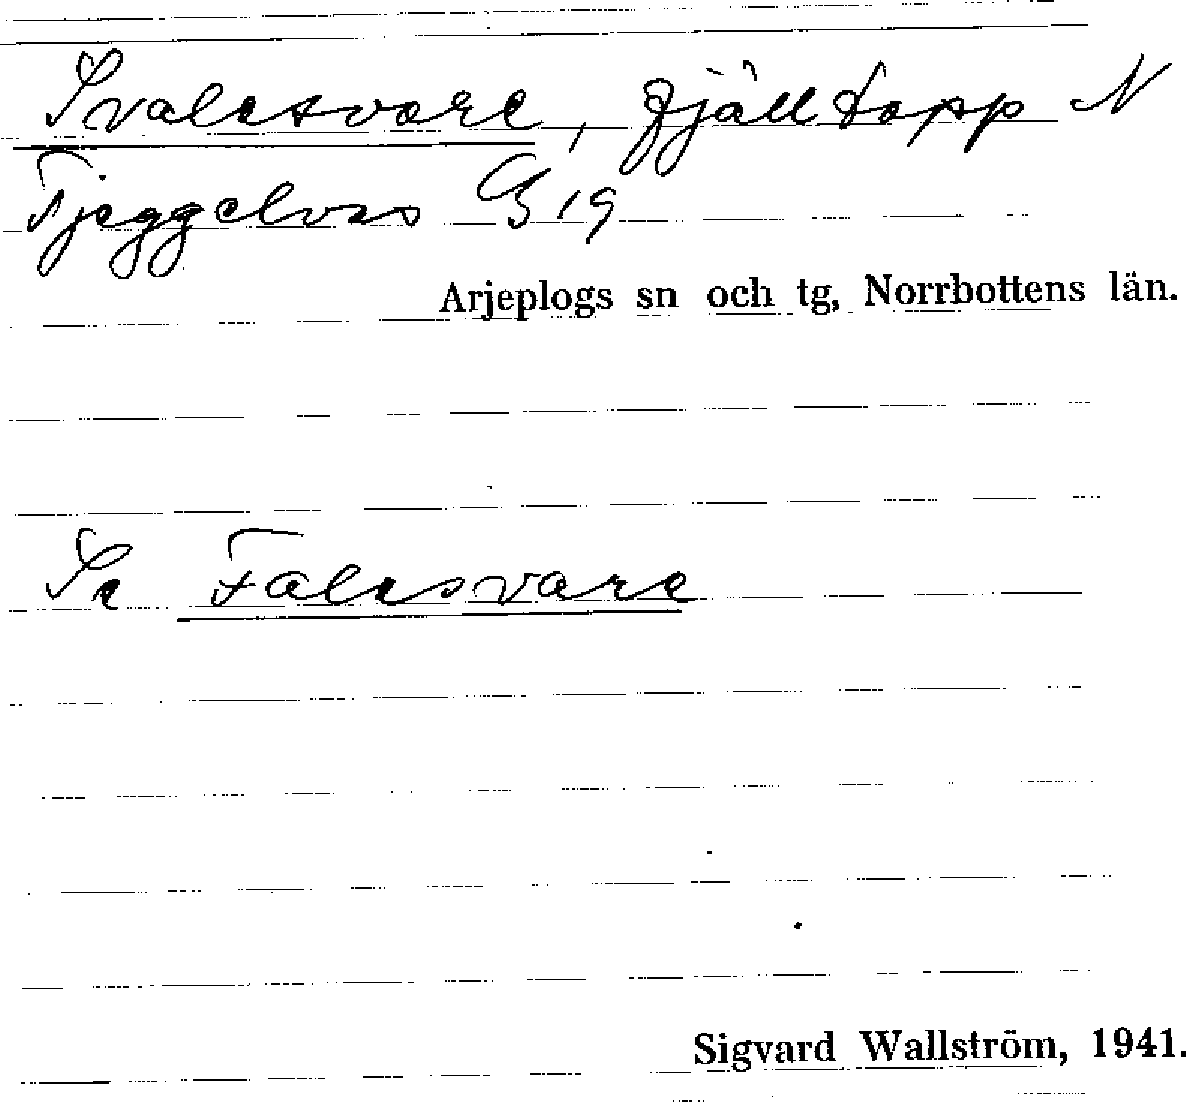 Svalesvare, fjälltopp N
Tjeggelvas G 19
Arjeplogs sn och tg, Norrbottens län.
Se Falesvare
Sigvard Wallström, 1941.